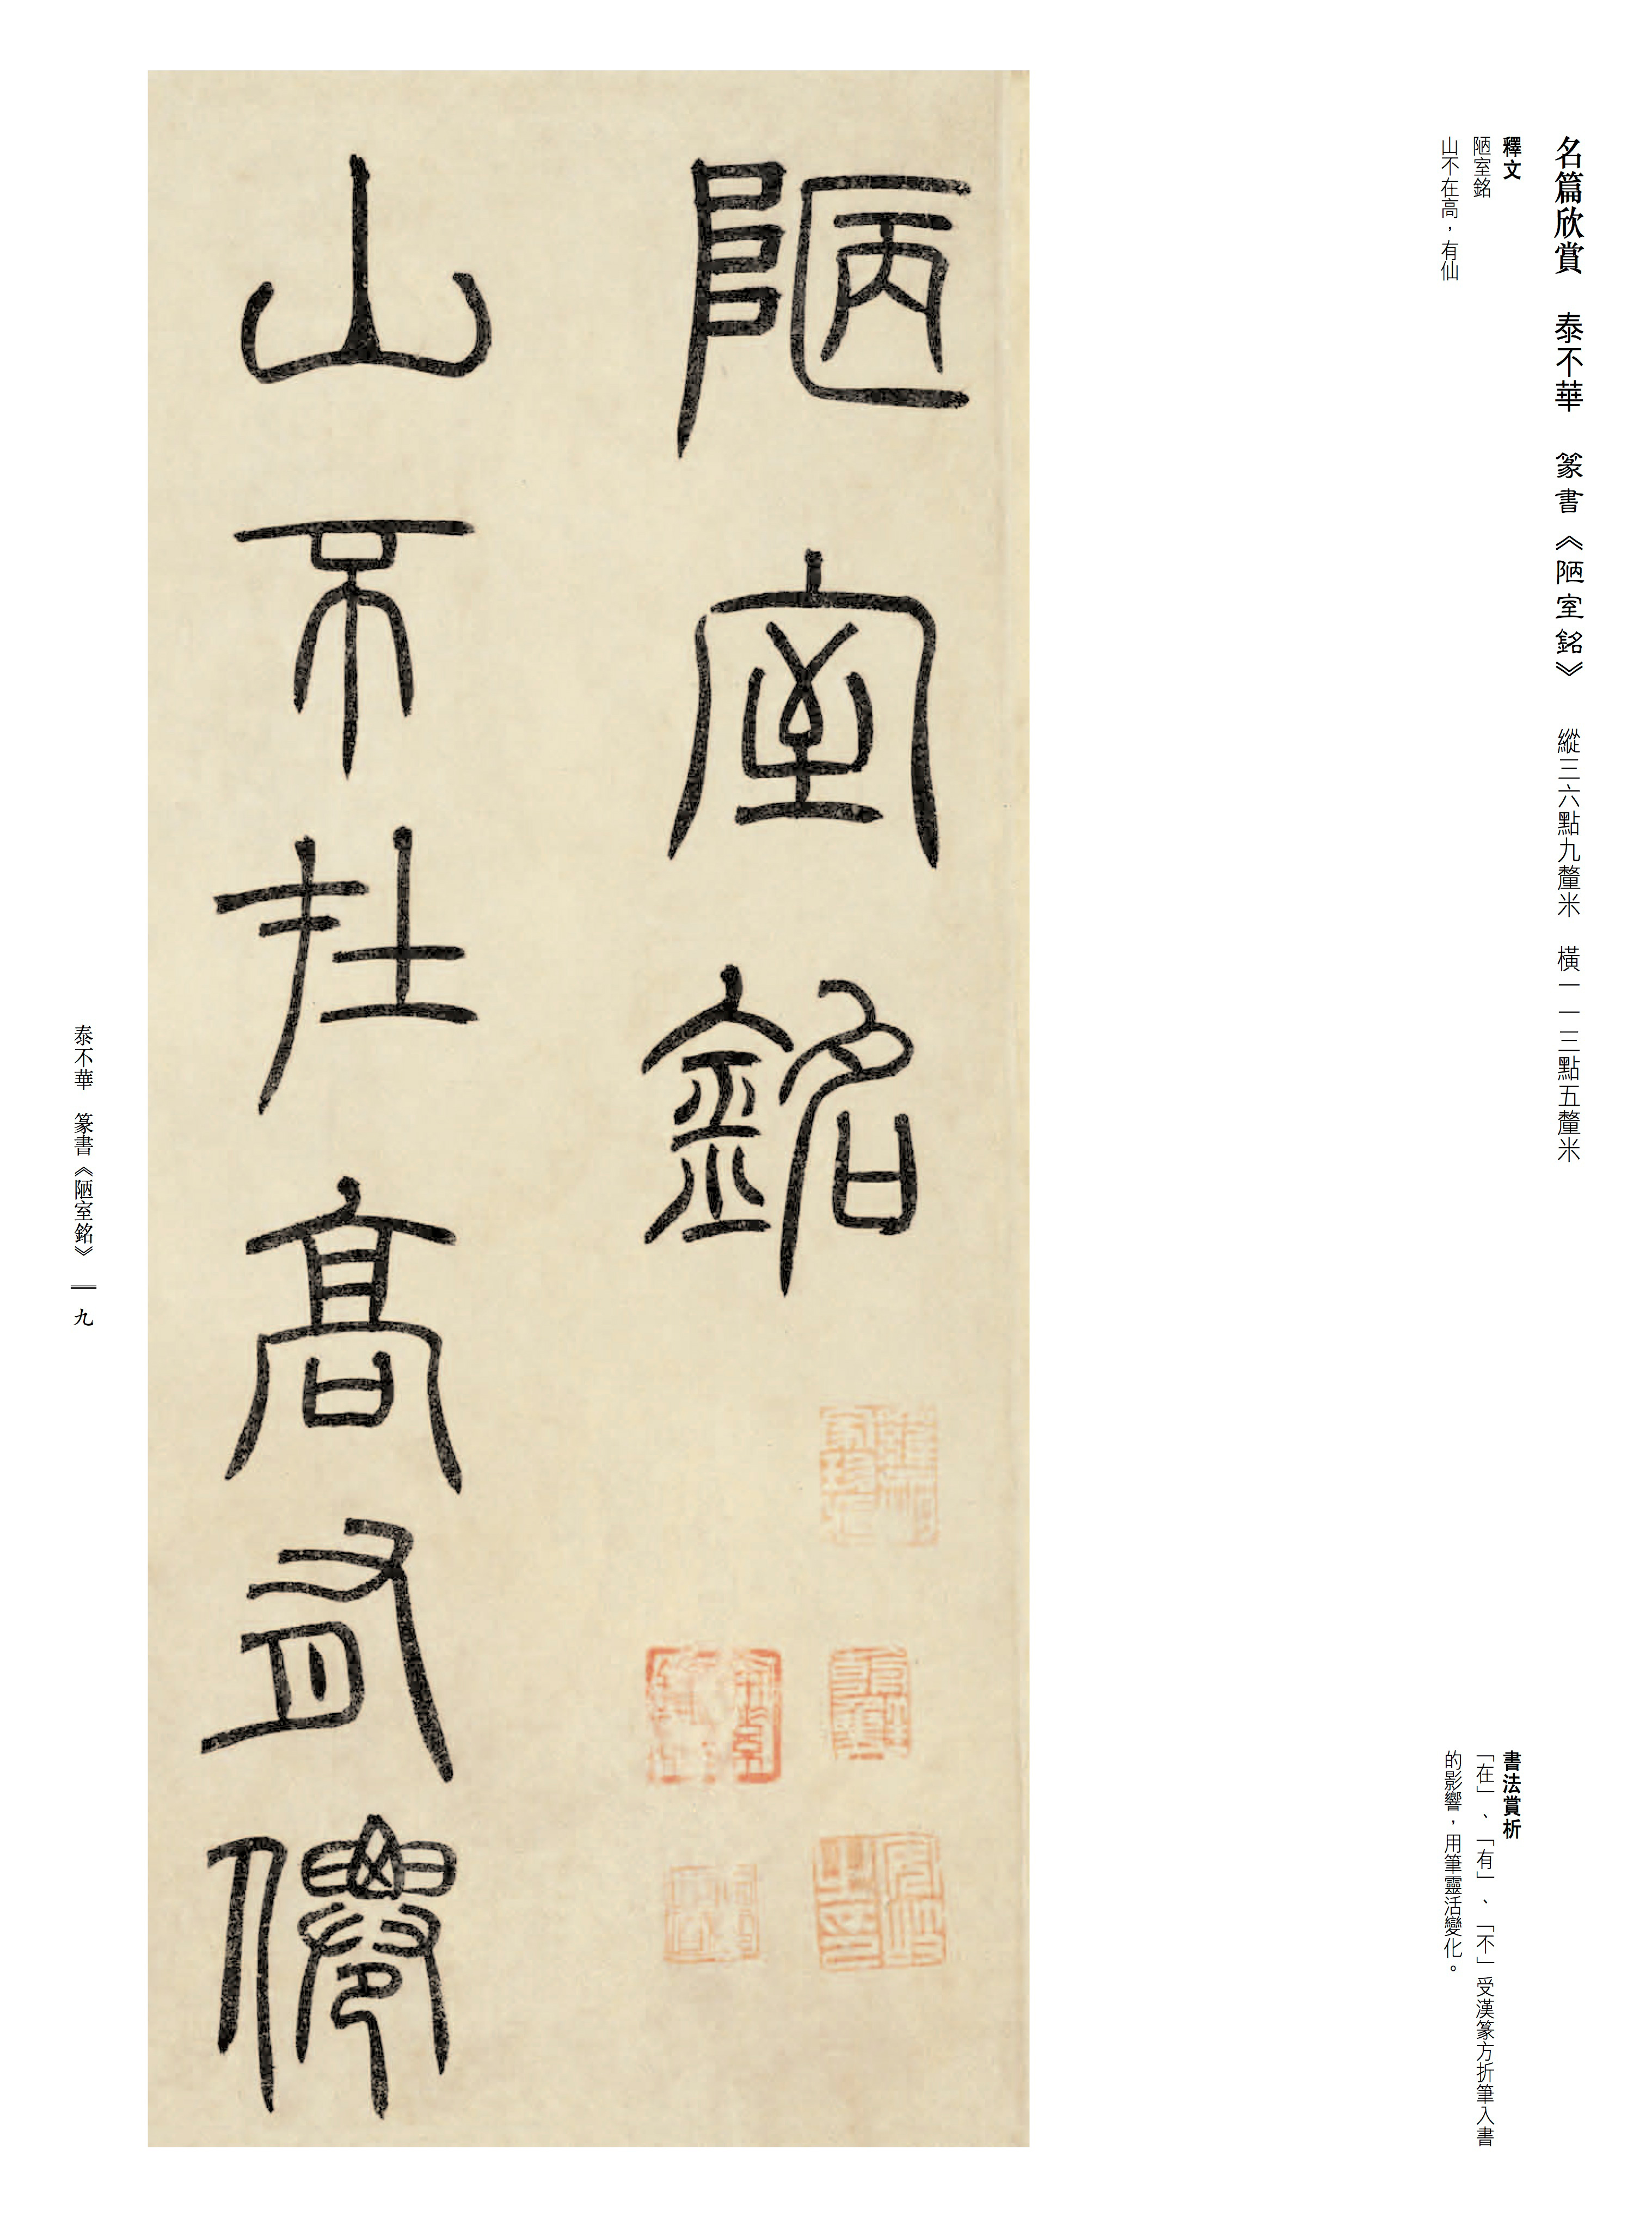 名篇欣賞　泰不華　篆書《陋室銘》　縱三六點九釐米　橫一一三點五釐米
釋文
陋室銘
山不在高，有仙
書法賞析
「在」、「有」、「不」受漢篆方折筆入書
的影響，用筆靈活變化。
陋室銘
山不在高有僊
泰不華　篆書《陋室銘》　九